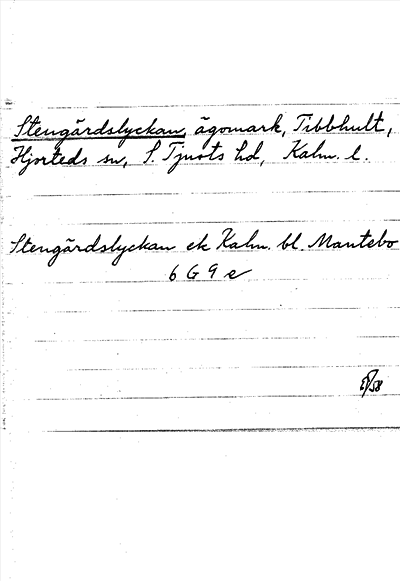 Stengårdslyckan, ägomark, Tibbhult,
Hjorteds sn, S. Tjusts hd, Kalm. l.
Stengårdslyckan ek Kalm. bl. Mantebo
6 G 9 e